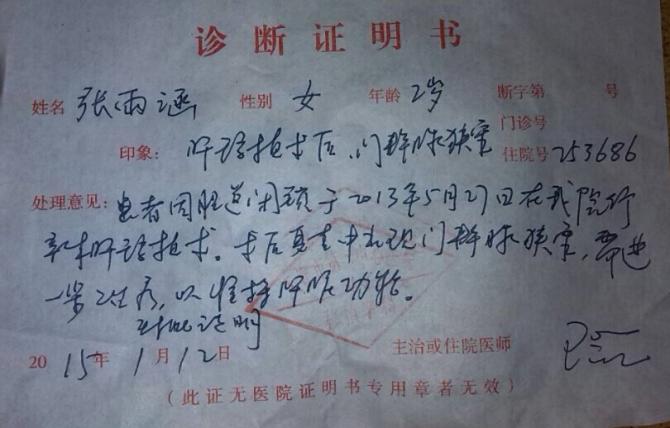 诊断证明书
姓名 张雨涵 性别 女 年龄 2岁 断字第 号
门诊号
印象: 肝移植术后、门静脉狭窄 住院号 253686
处理意见: 患者因胆道闭锁于2013年5月27日在我院行
肝移植术。术后复查中出现门静脉狭窄,需进
一步治疗,以维持肝脏功能。
特此证明
2015年1月12日 主治或住院医师
(此证无医院证明书专用章者无效)